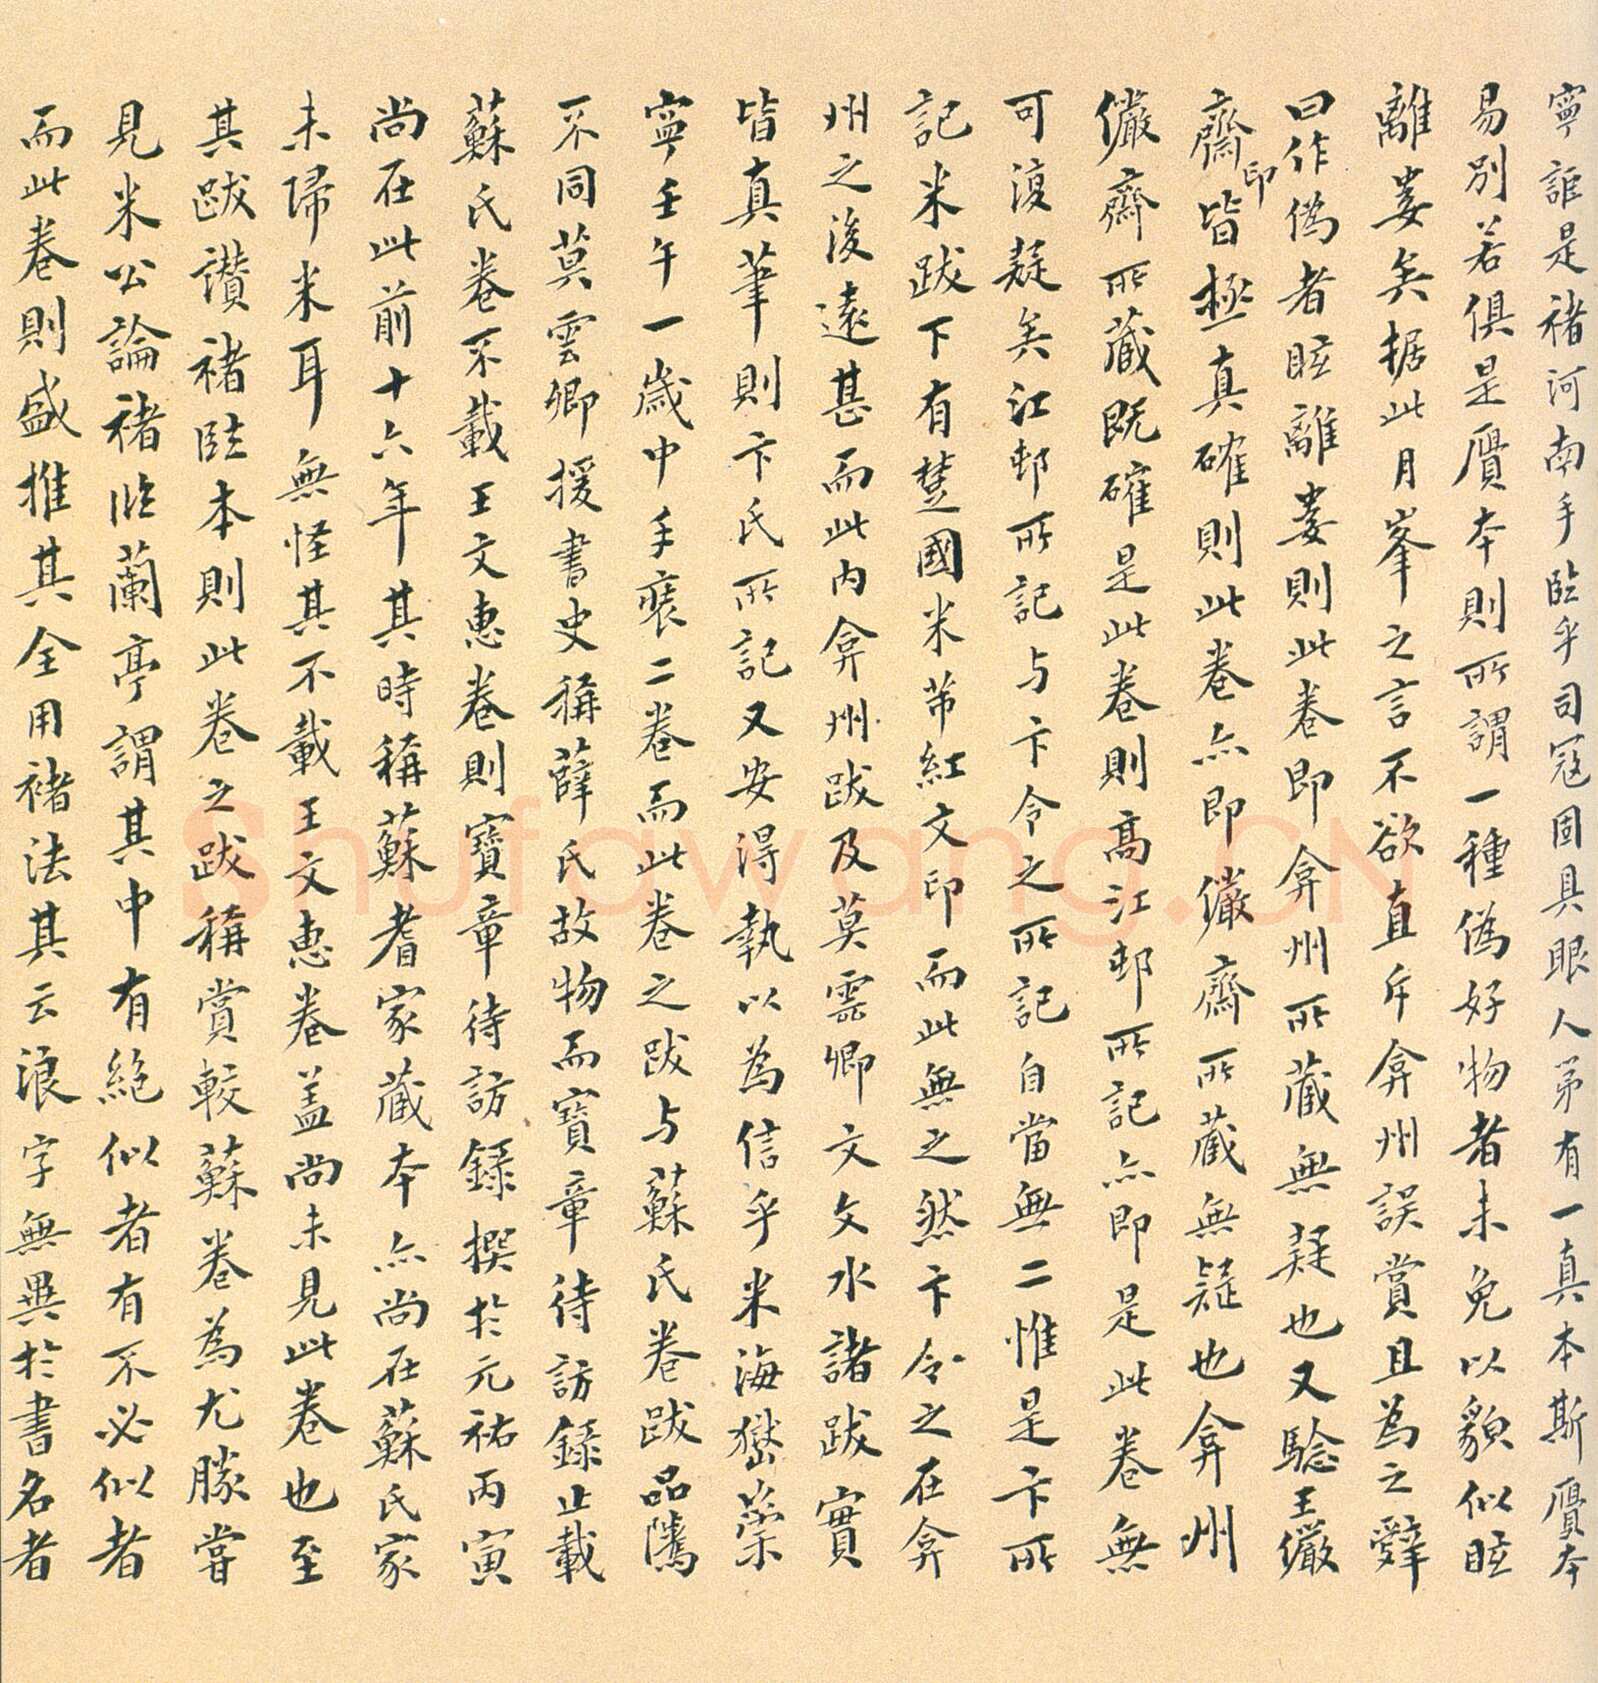 寧誰是褚河南手臨乎司寇固具眼人苐有一真本斯贋本
易別若俱是贋本則所謂一種偽好物者未免以貌似眩
離婁矣据此月峯之言不欲直斥弇州誤賞且為之辭
曰作偽者眩離婁則此卷即弇州所藏無疑也又驗王儼
齋印皆極真確則此卷亦即儼齋所藏無疑也弇州
儼齋所藏既確是此卷則高江邨所記亦即是此卷無
可復疑矣江邨所記与卞令之所記自當無二惟是卞所
記米跋下有楚國米芾紅文印而此無之然卞令之在弇
州之後遠甚而此內弇州跋及莫雲卿文文水諸跋實
皆真筆則卞氏所記又安得執以為信乎米海嶽崇
寧壬午一歲中手裝二卷而此卷之跋与蘇氏卷跋品隲
不同莫雲卿援書史稱薛氏故物而寶章待訪錄止載
蘇氏卷不載王文惠卷則寶章待訪錄撰於元祐丙寅
尚在此前十六年其時稱蘇耆家藏本亦尚在蘇氏家
未歸米耳無怪其不載王文惠卷盖尚未見此卷也至
其跋讚褚臨本則此卷之跋稱賞較蘇卷為尤勝嘗
見米公論褚臨蘭亭謂其中有絕似者有不必似者
而此卷則盛推其全用褚法其云浪字無異於書名者
Shufawang.CN